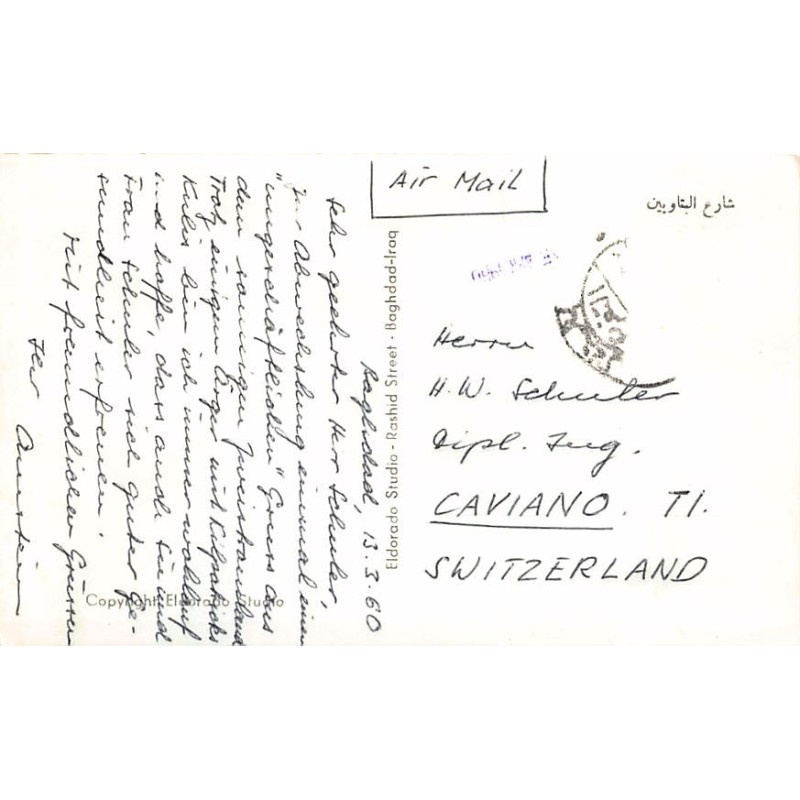 Air Mail
شارع البتاويين
Herrn
H. W. Schuler
Dipl. Ing.
CAVIANO. TI.
SWITZERLAND
Eldorado Studio - Rashid Street - Baghdad-Iraq
Copyright Eldorado Studio
Baghdad, 13.3.60
Sehr geehrter Herr Schuler,
Zur Abwechslung einmal einen
"ungeschäftlichen" Gruss aus
dem sonnigen Zweistromland
Trotz einigen Ärger mit
Kulis bin ich immer wohlauf
und hoffe, dass auch Sie und
Frau Schuler sich guter Ge-
sundheit erfreuen.
Mit freundlichen Grüssen
Ihr